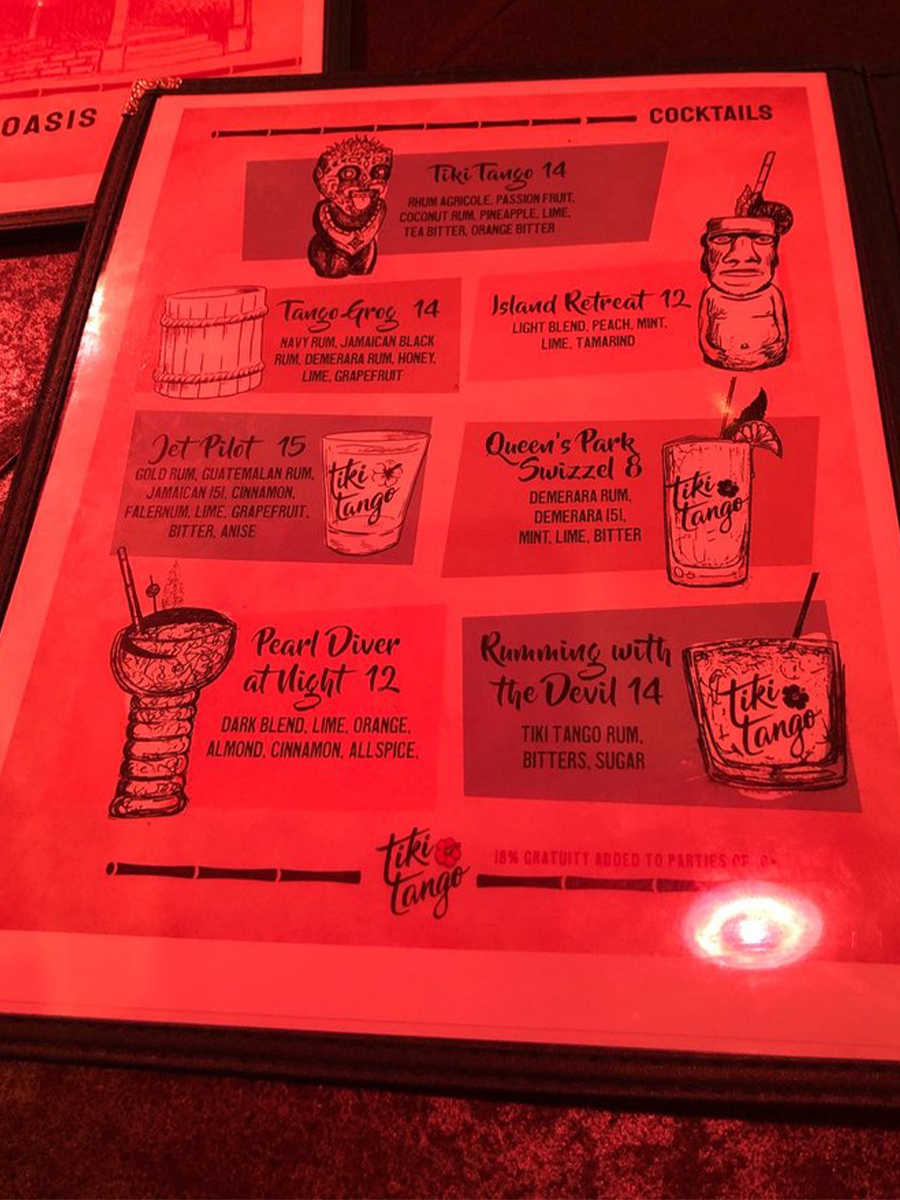 OASIS
COCKTAILS
Tiki Tango 14
RHUM AGRICOLE, PASSION FRUIT,
COCONUT RUM, PINEAPPLE, LIME,
TEA BITTER, ORANGE BITTER
Tango Grog 14
NAVY RUM, JAMAICAN BLACK
RUM, DEMERARA RUM, HONEY,
LIME, GRAPEFRUIT
Island Retreat 12
LIGHT BLEND, PEACH, MINT,
LIME, TAMARIND
Jet Pilot 15
GOLD RUM, GUATEMALAN RUM,
JAMAICAN 151, CINNAMON,
FALERNUM, LIME, GRAPEFRUIT,
BITTER, ANISE
tiki
tango
Queen's Park
Swizzel 8
DEMERARA RUM,
DEMERARA 151,
MINT, LIME, BITTER
tiki
tango
Pearl Diver
at Night 12
DARK BLEND, LIME, ORANGE,
ALMOND, CINNAMON, ALLSPICE,
Rumming with
the Devil 14
TIKI TANGO RUM,
BITTERS, SUGAR
tiki
tango
tiki
tango
18% GRATUITY ADDED TO PARTIES OF